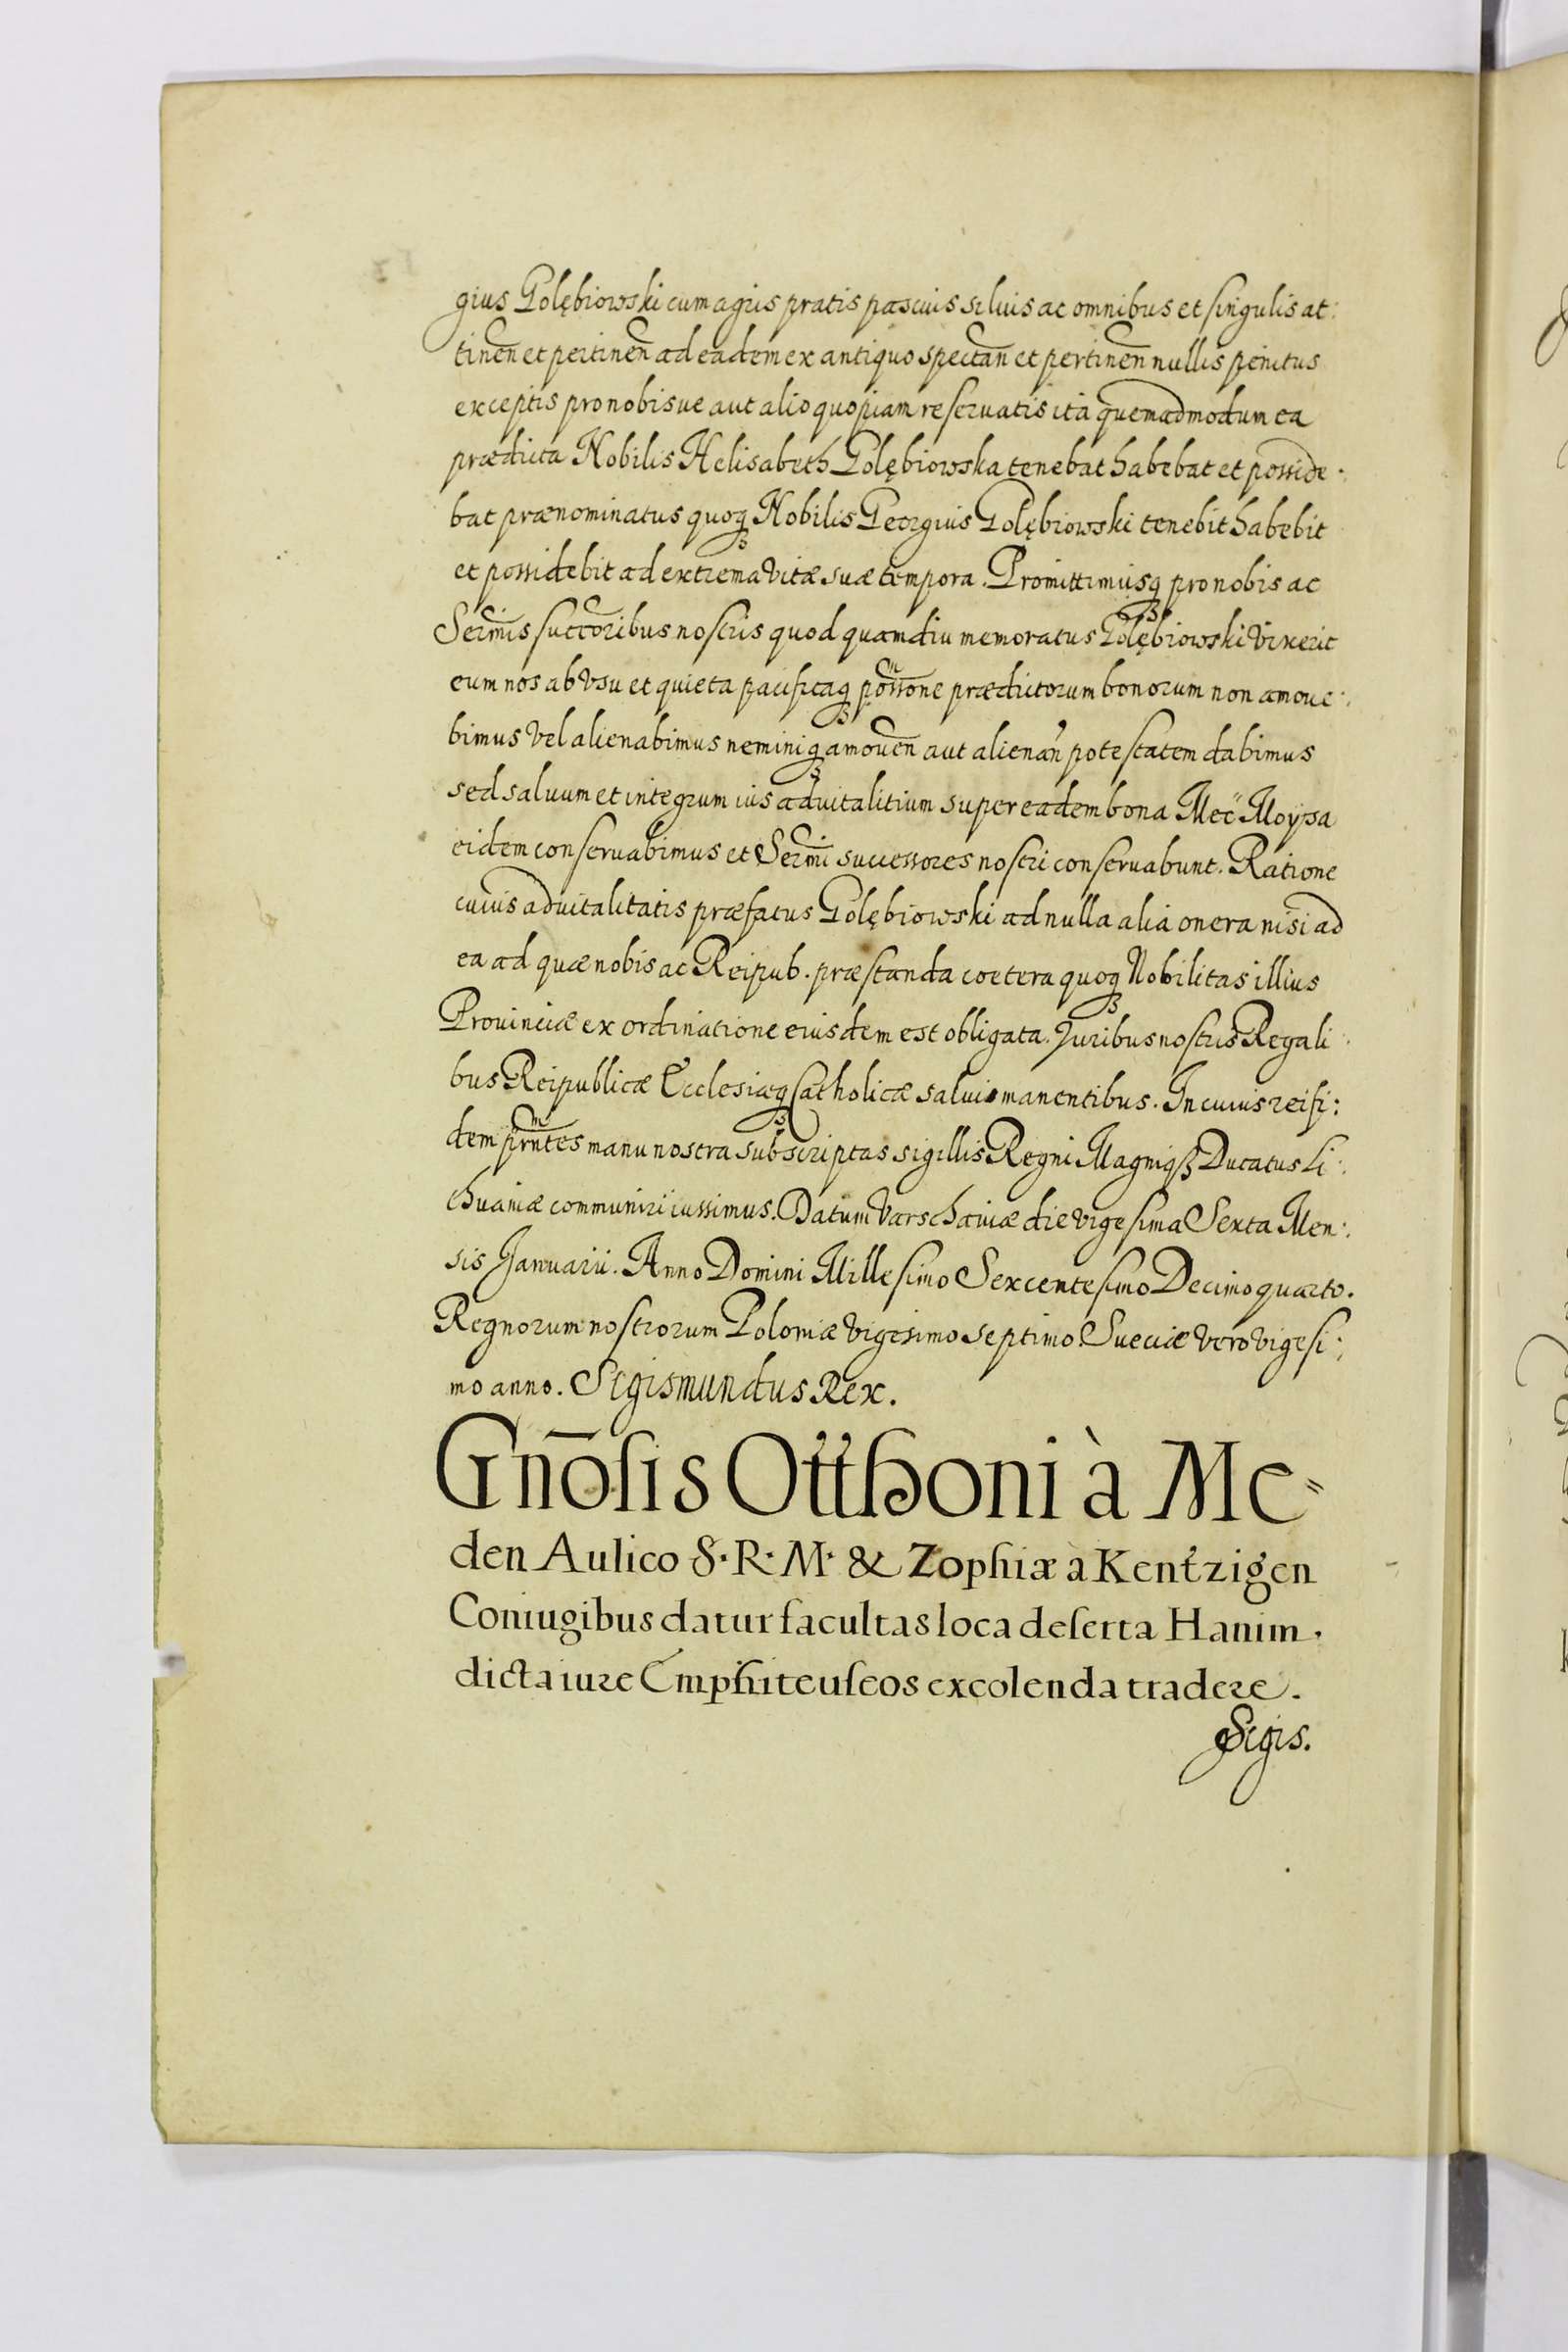 gius Gołębiowski cum agris pratis pascuis siluis ac omnibus et singulis at:
tineñ et pertineñ ad eadem ex antiquo spectañ et pertineñ nullis penitus
exceptis pro nobisue aut alio quopiam reseruatis ita quemadmodum ea
prædicta Nobilis Helisabeth Golębiowska tenebat habebat et posside:
bat prænominatus quoqꝫ Nobilis Georgius Golębiowski tenebit habebit
et possidebit ad extrema vitæ suæ tempora. Promittimusqꝫ pro nobis ac
Sermis succoribus nostris quod quamdiu memoratus Golębiowski vixerit
eum nos ab vsu et quieta pacificaqꝫ possone prædictorum bonorum non amoue:
bimus vel alienabimus neminiqꝫ amoueñ aut alienañ potestatem dabimus
sed saluum et integrum ius aduitalitium super eadem bona Mec Moyssa
eidem conseruabimus et Sermi successores nostri conseruabunt. Ratione
cuius aduitalitatis præfatus Golębiowski ad nulla alia onera nisi ad
ea ad quæ nobis ac Reipub. præstanda coetera quoqꝫ Nobilitas illius
Prouinciæ ex ordinatione eiusdem est obligata. Juribus nostris Regali:
bus Reipublicæ Ecclesiæqꝫ Catholicæ saluis manentibus. In cuius rei fi:
dem pñtes manu nostra subscriptas sigillis Regni Magniqꝫ Ducatus Li:
thuaniæ communiri iussimus. Datum Varschauiæ die vigesima Sexta Men:
sis Januarii. Anno Domini Millesimo Sexcentesimo Decimo quarto.
Regnorum nostrorum Poloniæ vigesimo septimo Sueciæ vero vigesi:
mo anno. Sigismundus Rex.
Gnōsis Otthoni à Me=
den Aulico S. R. M. & Zophiæ à Kentzigen
Coniugibus datur facultas loca deserta Hanim
dicta iure Emphiteuseos excolenda tradere.
Sigis.